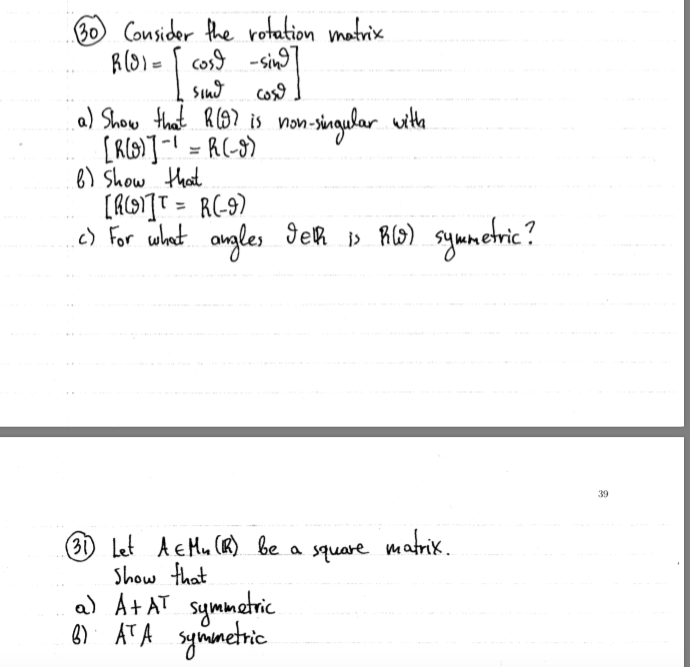 (30) Consider the rotation matrix
R(ϑ) = [ cosϑ -sinϑ
sinϑ cosϑ ]
a) Show that R(ϑ) is non-singular with
[R(ϑ)]⁻¹ = R(-ϑ)
b) Show that
[R(ϑ)]ᵀ = R(-ϑ)
c) For what angles ϑ∈ℝ is R(ϑ) symmetric?
39
(31) Let A ∈ Mₙ(ℝ) be a square matrix.
Show that
a) A + Aᵀ symmetric
b) AᵀA symmetric